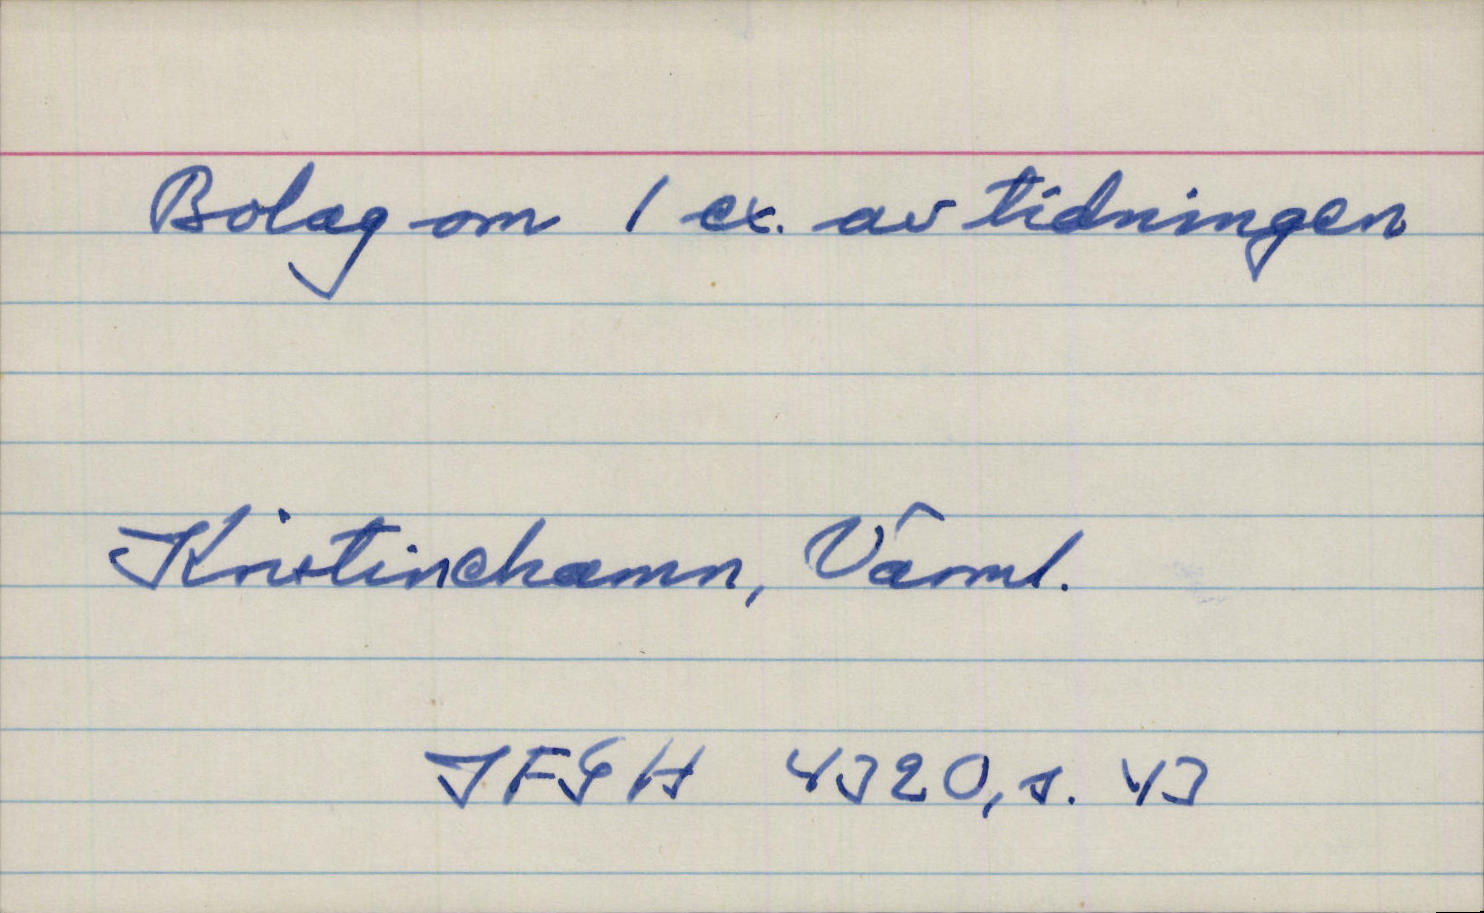 Bolag om 1 ex. av tidningen
Kristinehamn, Värml.
IFGH 4320, s. 43